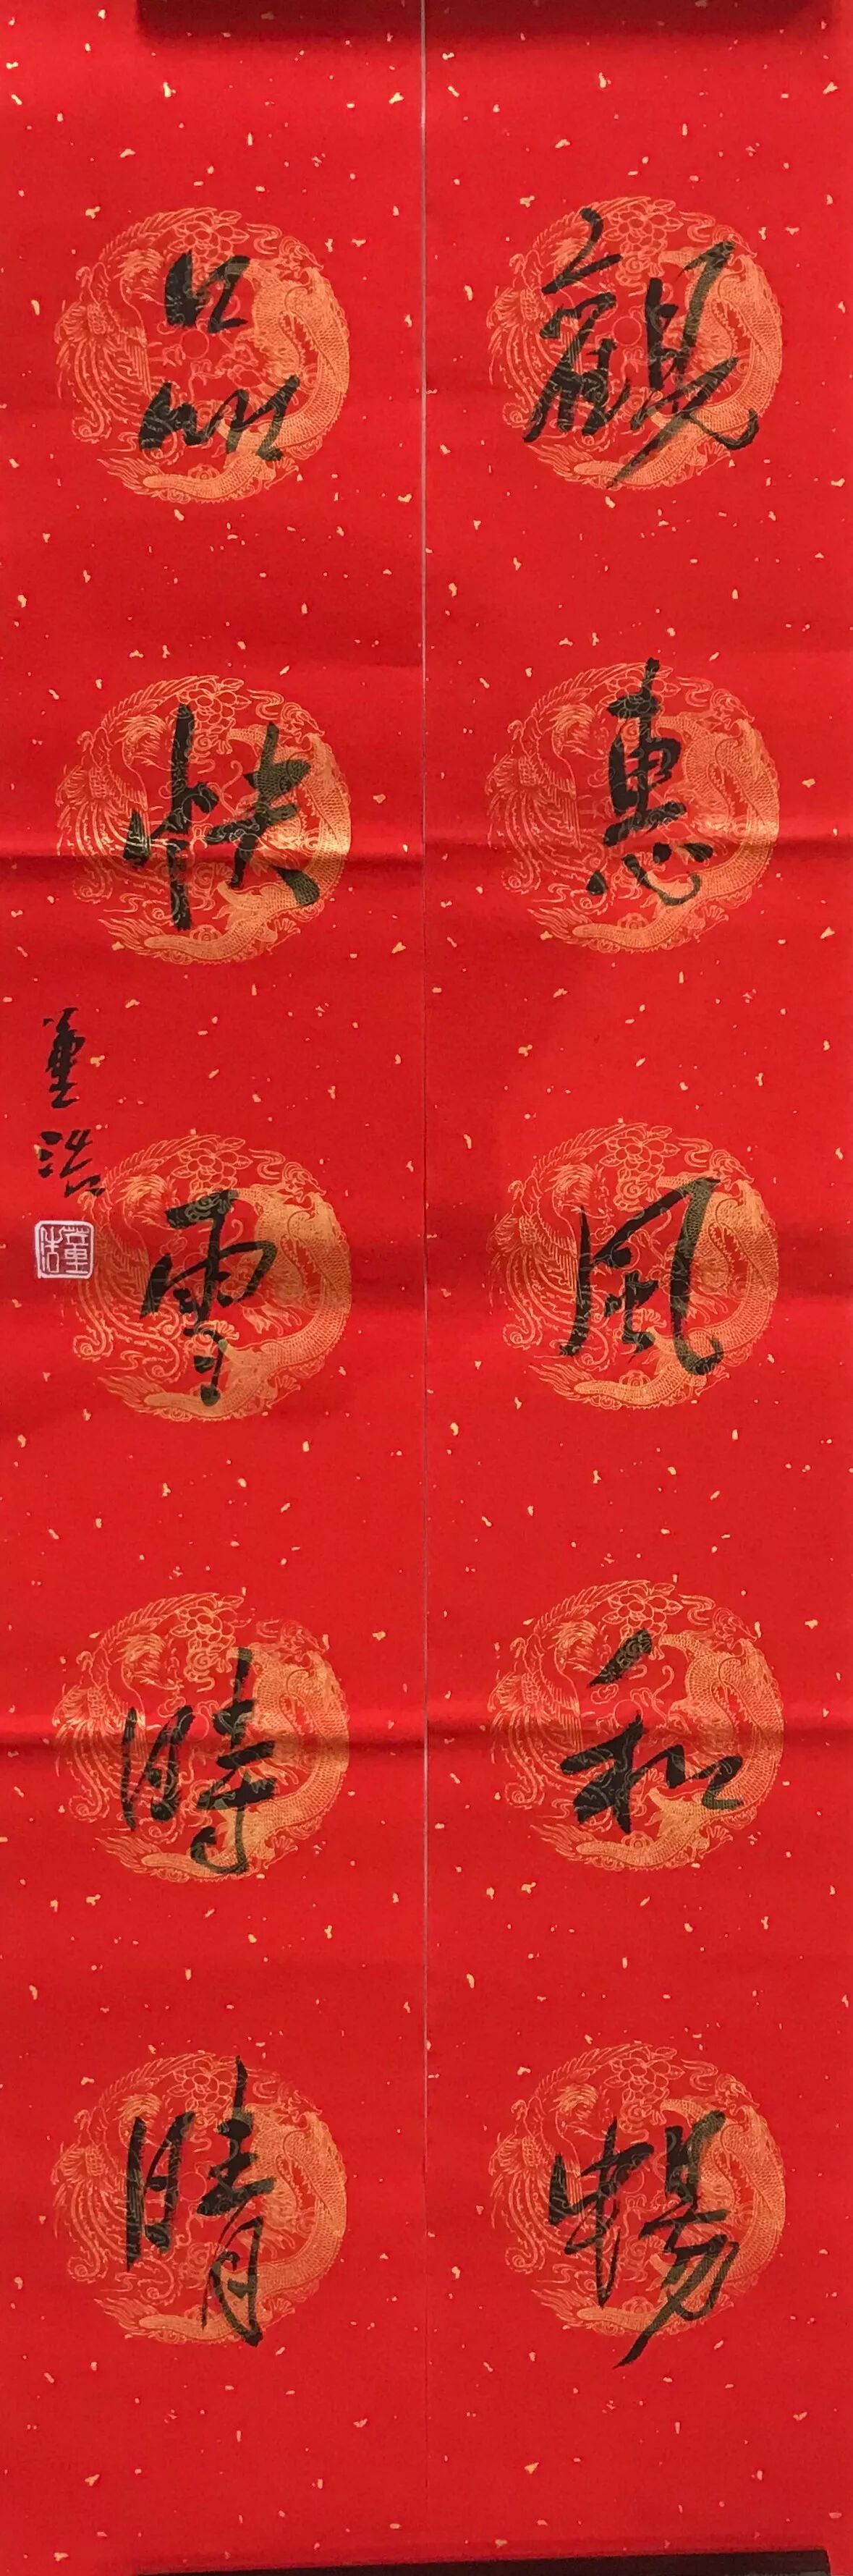 觀惠風和暢
品快雪時晴
董浩
董浩